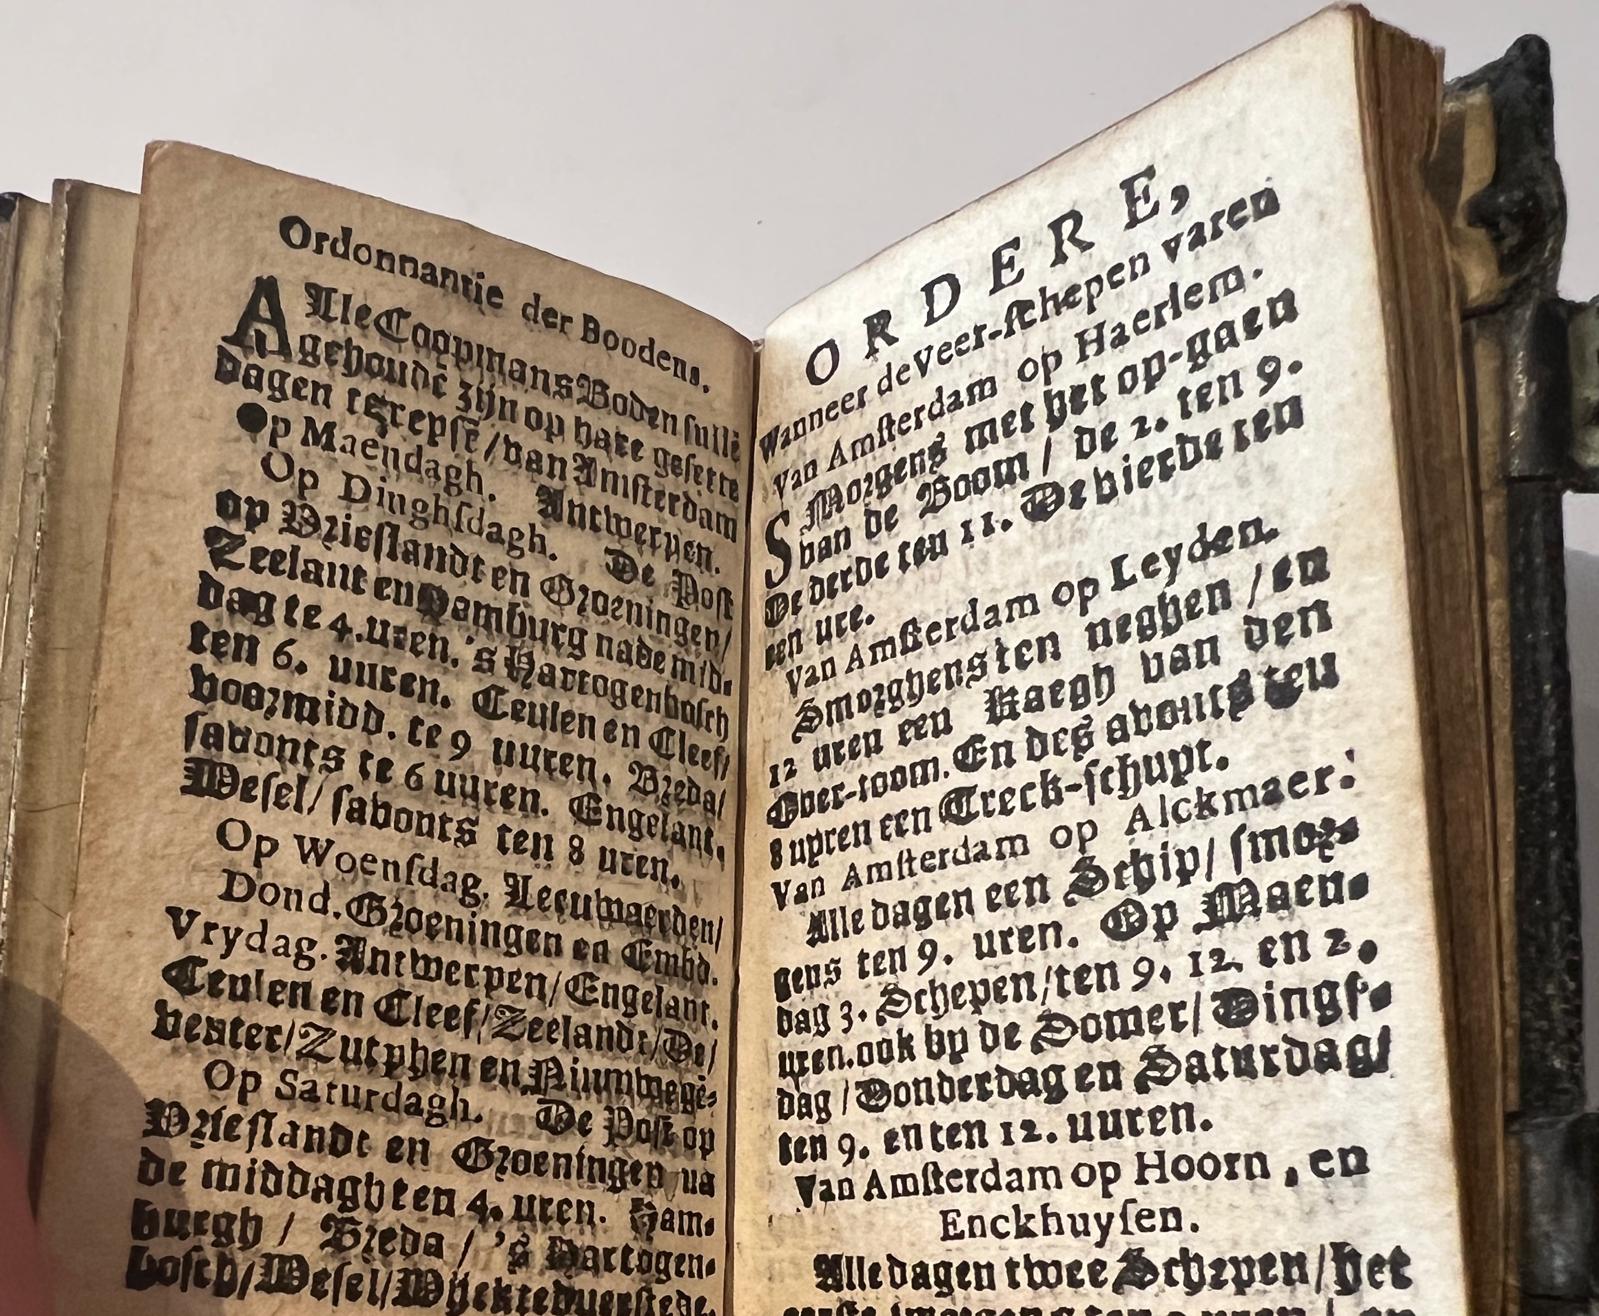 Ordonnantie der Boodens.
Alle Coopmans Boden sullē
gehoudē zijn op hare gesette
dagen te repsē / van Amsterdam
Op Maendagh. Antwerpen.
Op Dinghsdagh. De Post
op Vrieslandt en Groeningen/
Zeelant en Hamburg nade mid-
dag te 4. uren. 's Hartogenbosch
ten 6. uuren. Ceulen en Cleef/
voormidd. te 9 uuren. Breda/
savonts te 6 uuren. Engelant,
Wesel/ savonts ten 8 uren.
Op Woensdag. Leeuwaerden/
Dond. Groeningen en Embd.
Vrydag. Antwerpen/Engelant.
Ceulen en Cleef/Zeelandt/De/
venter/Zutphen en Nimmegē-
Op Saturdagh. De Post op
Vrieslandt en Groeningen na
de middagh ten 4. uren. Ham-
burgh / Breda / 's Hartogen-
bosch/Wesel/Wijckteduerstede.
ORDERE,
Wanneer de Veer-schepen varen
Van Amsterdam op Haerlem.
SMorgens met het op-gaen
van de Boom / de 2. ten 9.
De derde ten 11. De vierde ten
een ure.
Van Amsterdam op Leyden.
Smorghens ten neghen / en
12 uren een Kaegh van den
Over-toom. En des avonts ten
8 uyren een Treck-schupt.
Van Amsterdam op Alckmaer.
Alle dagen een Schip/ smor-
gens ten 9. uren. Op Maen-
dag 3. Schepen/ten 9. 12. en 2.
uren. ook by de Somer/ Dings-
dag / Donderdag en Saturdag/
ten 9. en ten 12. uuren.
Van Amsterdam op Hoorn, en
Enckhuysen.
Alle dagen twee Schepen/het